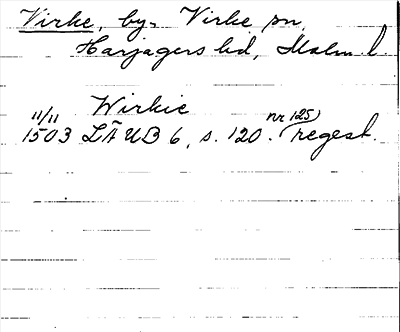 Virke, by, Virke sn,
Harjagers hd, Malm. l.
Wirkie
11/11
1503 LÄUB 6, s. 120. (nr 125) regest.